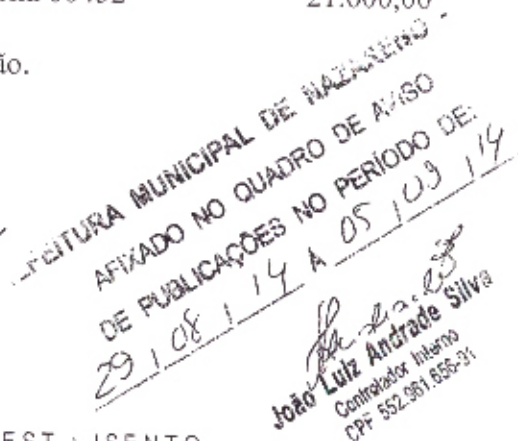 21.000,00
ão.
EITURA MUNICIPAL DE NAZARENO
AFIXADO NO QUADRO DE AVISO
DE PUBLICAÇÕES NO PERÍODO DE:
29 / 08 / 14 A 05 / 09 / 14
João Luiz Andrade Silva
Controlador Interno
CPF 552.961.656-31
EST : ISENTO